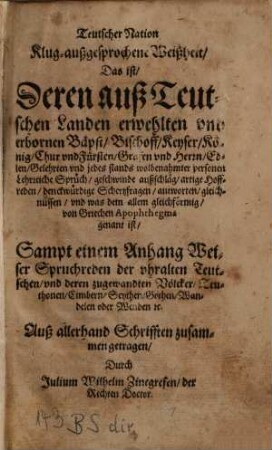 Teutscher Nation
Klug-außgesprochene Weißheit/
Das ist/
Deren auß Teut-
schen Landen erwehlten vnd
erbornen Bäpst/ Bischoff/ Keyser/ Kö-
nig/ Chur vnd Fürsten/ Grafen vnd Herrn/ Ed-
len/ Gelehrten vnd jedes stands wolbenahmter personen
Lehrreiche Sprüch/ geschwinde außschläg/ artige Hoff-
reden/ denckwürdige Schertzfragen/ antworten/ gleich-
nüssen/ vnd was dem allem gleichförmig/
von Griechen Apophthegma-
genant ist/
Sampt einem Anhang Wei-
ser Spruchreden der vhralten Teut-
schen/ vnd deren zugewandten Völcker/ Teu-
thonen/ Cimbern/ Scythen/ Gothen/ Wan-
delen oder Wenden ꝛc.
Auß allerhand Schrifften zusam-
men getragen/
Durch
Julium Wilhelm Zincgrefen/ der
Rechten Doctor.
BS dir.